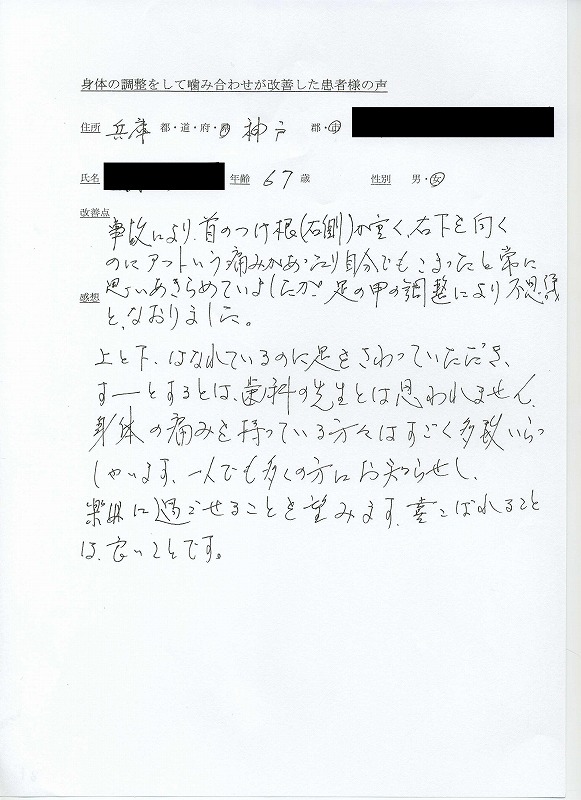 身体の調整をして噛み合わせが改善した患者様の声
住所 兵庫 都・道・府・県 神戸 郡・市
氏名 年齢 67 歳 性別 男・女
改善点
事故により、首のつけ根(右側)が重く、右下を向く
のにアットいう痛みがあったり自分でもこまったと常に
感想 思いあきらめていましたが、足の甲の調整により不思議
と、なおりました。
上と下、はなれているのに足をさわっていただき、
すーーとするとは、歯科の先生とは思われません。
身体の痛みを持っている方々はすごく多数いらっ
しゃいます、一人でも多くの方にお知らせし、
楽に過ごせることを望みます、喜こばれること
は、良いことです。